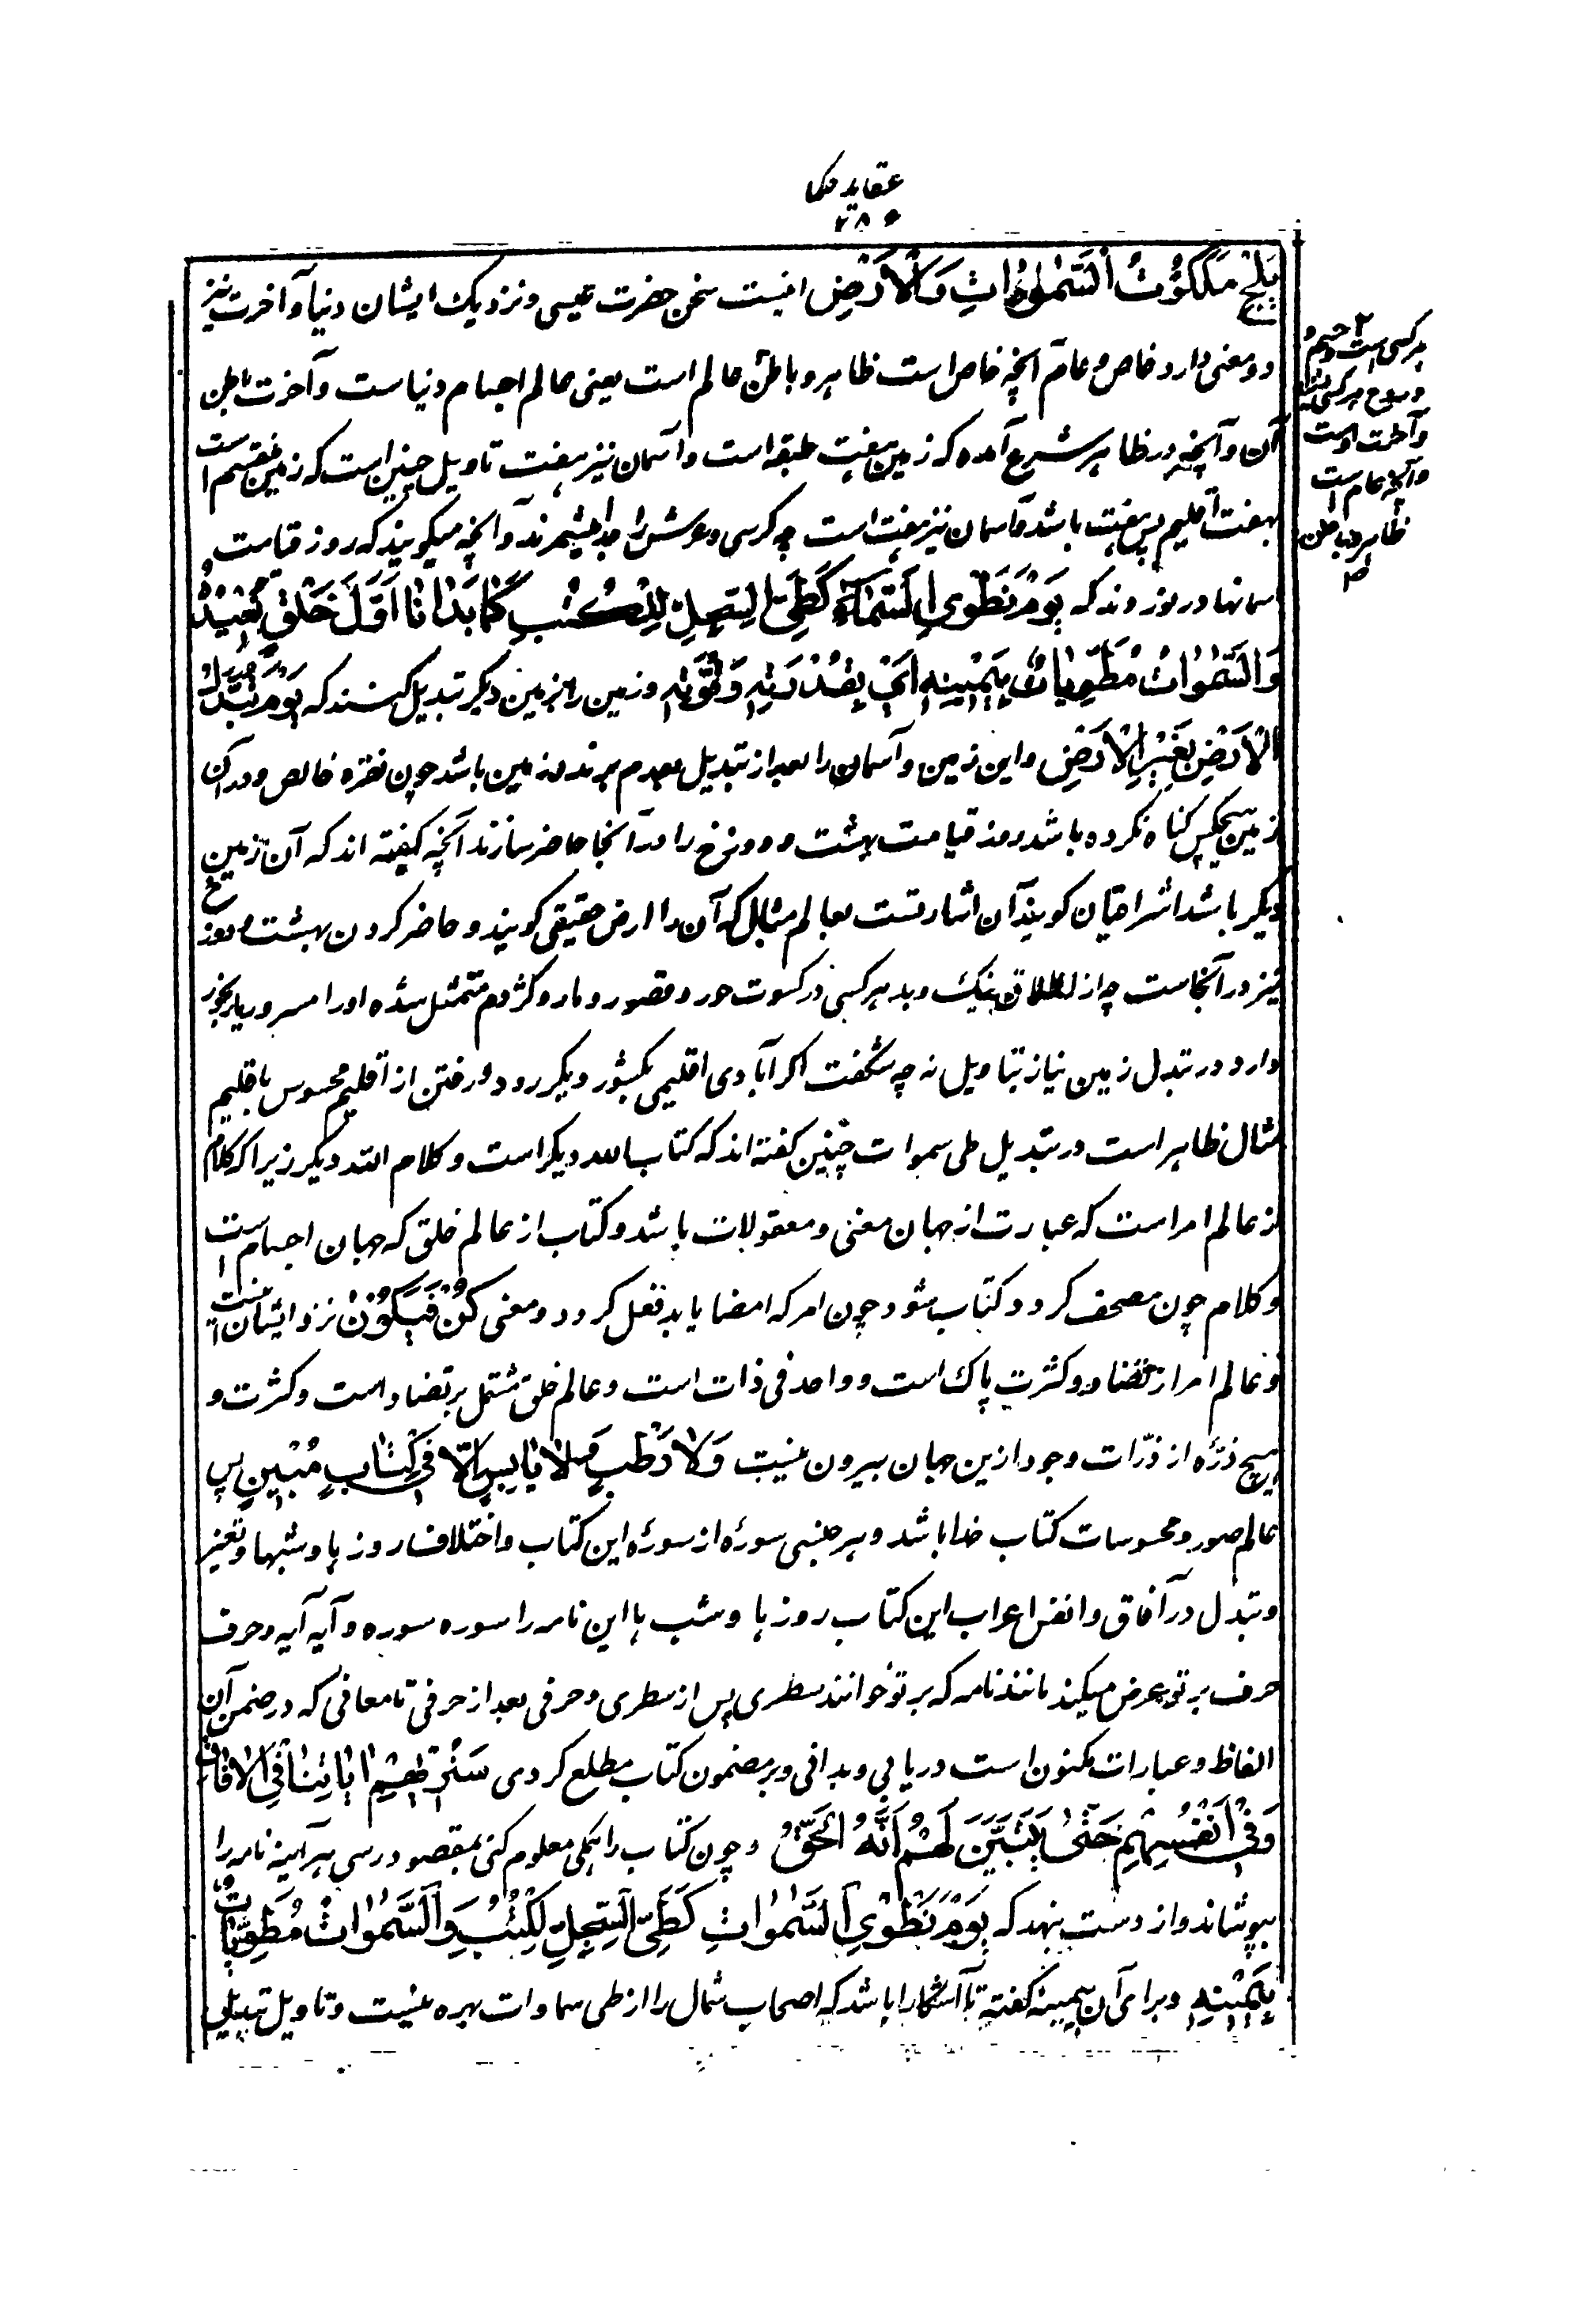 عقاید حکما
۲۸۶
یَلِجْ مَلَکُوْتُ السَّمٰوٰاتِ وَالْاَرْضِ اینست سخن حضرت عیسی و نزدیک ایشان دنیا و آخرت نیز
دو معنی دارد خاص و عام آنچه خاص است ظاهر و باطن عالم است یعنی عالم اجسام دنیاست و آخرت باطن
آن و آنچه در ظاهر شرع آمده که زمین هفت طبقه است و آسمان نیز هفت تاویل چنین است که زمین منقسم است
بهفت اقلیم پس هفت باشد و آسمان نیز هفت است چه کرسی و عرش را جدا میشمرند و آنچه میگویند که روز قیامت
آسمانها در نوردند که یَوْمَ نَطْوِی السَّمَآءَ کَطَیِّ السِّجِلِّ لِلْکُتُبِ کَمَا بَدَاْنَا اَوَّلَ خَلْقٍ نُعِیْدُهُ
وَالسَّمٰوٰاتُ مَطْوِیّاتٌ بِیَمِیْنِهِ اَیْ بِقُدْرَتِهِ وَقُوَّتِهِ و زمین را بزمین دیگر تبدیل کنند که یَوْمَ تُبَدَّلُ
الْاَرْضِ بِغَیْرِ الْاَرْضِ و این زمین و آسمان را بعد از تبدیل بعدم برند و زمین باشد چون نقره خالص و در آن
زمین هیچکس گناه نکرده باشد روز قیامت بهشت و دوزخ را در آنجا حاضر سازند آنچه گفته اند که آن زمین
دیگر باشد اشراقیان گویند آن اشارتست بعالم مثال که آن را ارض حقیقی گویند و حاضر کردن بهشت و دوزخ
نیز در آنجاست چه از اخلاق نیک و بد هر کسی در کسوت حور و قصور و مار و کژدم متمثل شده او را مسرور یا رنجور
دارد و در تبدل زمین نیاز بتاویل نه چه شگفت اگر آبادی اقلیمی بکشور دیگر رود و رفتن از اقلیم محسوس باقلیم
مثال ظاهر است در تبدیل طی سموات چنین گفته اند که کتاب الله دیگر است و کلام الله دیگر زیرا که کلام
از عالم امر است که عبارت از جهان معنی و معقولات باشد و کتاب از عالم خلق که جهان اجسام است
و کلام چون مصحف گردد کتاب شود چون امر که امضا یابد فعل گردد و معنی کُنْ فَیَکُوْنُ نزد ایشان اینست
و عالم امر از تضاد و کثرت پاک است و واحد فی ذات است و عالم خلق مشتمل بر تضاد است و کثرت و
هیچ ذرّه از ذرّات وجود ازین جهان بیرون نیست وَلَا رَطْبٍ وَلَا یَابِسٍ اِلَّا فِیْ کِتَابٍ مُبِیْنٍ پس
عالم صور و محسوسات کتاب خدا باشد و هر جنسی سورهٔ از سورهٔ این کتاب و اختلاف روز ها و شبها و تغیر
و تبدل در آفاق و انفس اعراب این کتاب روز ها و شب ها این نامه را سوره سوره و آیه آیه و حرف
حرف بر تو عرض میکند مانند نامه که بر تو خوانند سطری پس از سطری و حرفی بعد از حرفی تا معانی که در ضمن آن
الفاظ و عبارات مکنون است دریابی و بدانی و بر مضمون کتاب مطلع گردی سَنُرِیْهِمْ اٰیَاتِنَا فِی الْاٰفَاقِ
وَفِیْ اَنْفُسِهِمْ حَتّٰی یَتَبَیَّنَ لَهُمْ اَنَّهُ الْحَقُّ و چون کتاب را همگی معلوم کنی بمقصود رسی هر آینه نامه را
بپوشاند و از دست بنهد که یَوْمَ نَطْوِی السَّمٰوٰاتِ کَطَیِّ السِّجِلِّ لِکُتُبِ وَالسَّمٰوٰاتُ مَطْوِیّاتٌ
بِیَمِیْنِهِ و برای آن بیمینه گفته تا آشکارا باشد که اصحاب شمال را از طی سماوات بهره نیست و تاویل تبدیل
هر کسی است و جسم
و روح هر کسی
و آخرت اوست
و آنچه عام است
ظاهر و باطن